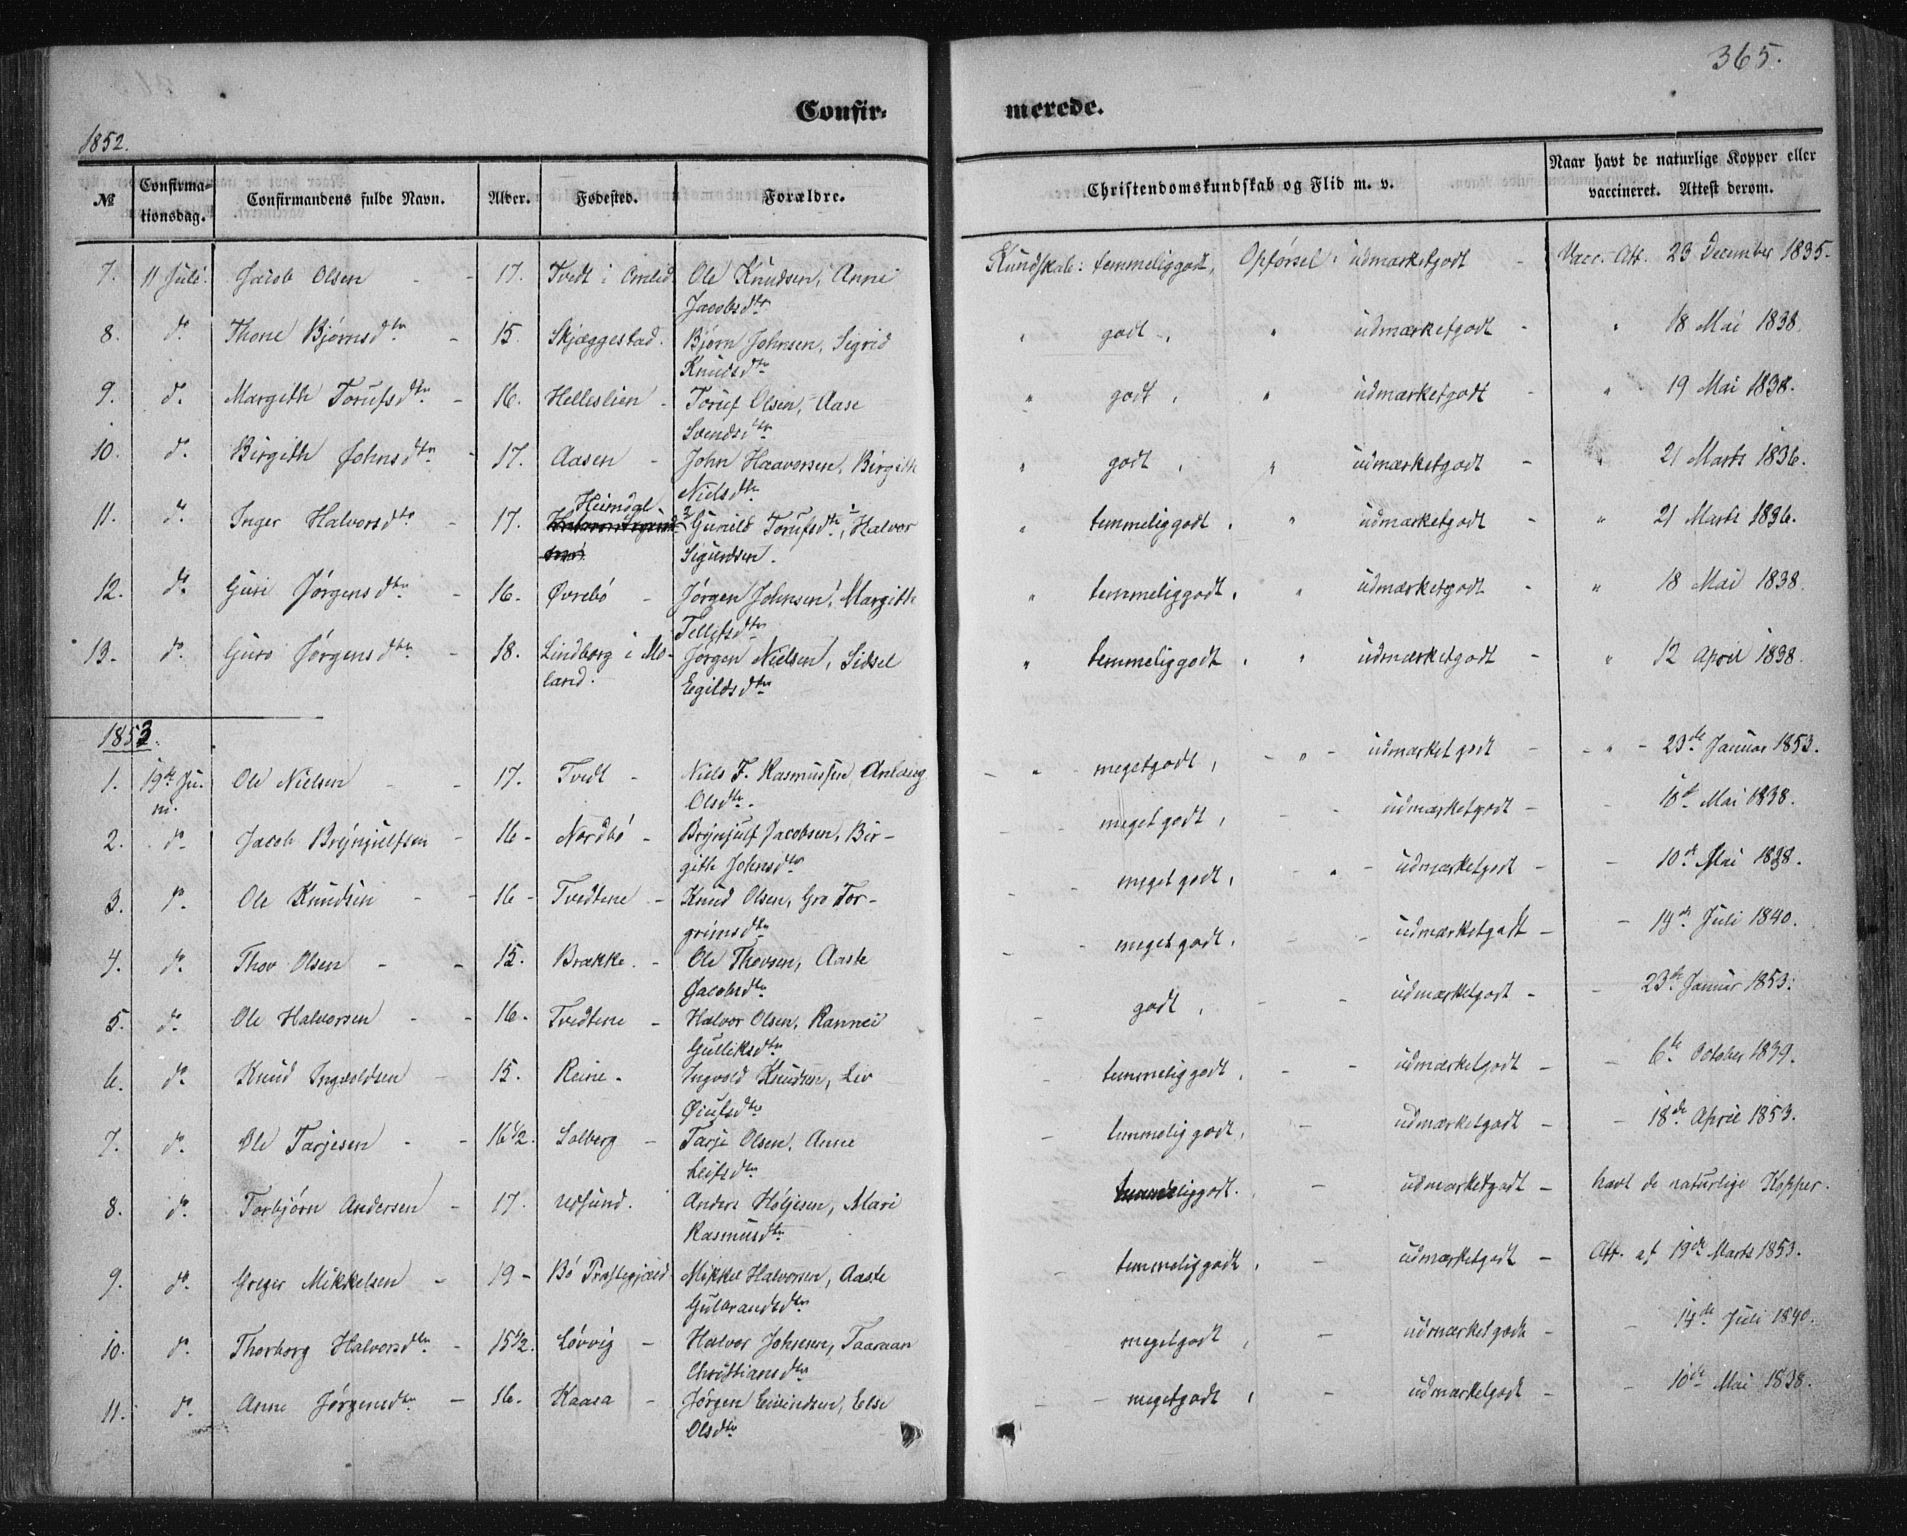 365.
Confirmerede.
1852.
№ Confirmationsdag. Confirmandens fulde Navn. Alder. Fødested. Forældre. Christendomskundskab og Flid m. v. Naar havt de naturlige Kopper eller vaccineret. Attest derom.
7. 11 Juli. Jacob Olsen - 17. Tvedt i Omlid. Ole Knudsen, Anne Jacobsdtr Kundskab: temmeliggodt, Opførsel: udmærketgodt - Vacc. Att. 23 December 1835.
8. do. Thone Bjørnsdtr - 15. Skjæggestad. Bjørn Johnsen, Sigrid Knudsdtr " godt, " udmærketgodt - " 18 Mai 1838.
9. do. Margith Torufsdtr. - 16. Helleslien - Toruf Olsen, Aase Svendsdtr " godt, " udmærketgodt - " 19 Mai 1838.
10. do. Birgith Johnsdtr - 17. Aasen - John Haavorsen, Birgith Nielsdtr " godt, " udmærketgodt - " 21 Marts 1836.
11. do. Inger Halvorsdtr - 17. Heimdal 2 Gunild Torufsdtr, 1 Halvor Sigurdsen. " temmeliggodt, " udmærketgodt - " 21 Marts 1836.
12. do. Guri Jørgensdtr - 16. Øvrebø - Jørgen Johnsen, Margith Tellefsdtr " temmeliggodt, " udmærketgodt - " 18 Mai 1838.
13. do. Guro Jørgensdtr - 18. Lindborg i Moland. Jørgen Nielsen, Sidsel Egildsdtr " temmeliggodt, " udmærketgodt - " 12 April 1838.
1853.
1. 19de Juni. Ole Nielsen - 17. Tvedt - Niels F. Rasmussen, Olsdtr. - " meget godt, - " - udmærket godt - - " - 23de Januar 1853.
2. do Jacob Brynjulfsen - 16 - Nordbø - Brynjulf Jacobsen, Birgith Johnsdtr - - meget godt, - udmærketgodt - - 18de Mai 1838.
3. do. Ole Knudsen - - 16 - Tvedtene - Knud Olsen, Gro Torgrimsdtr - - meget godt, - " - udmærketgodt - - 10de Mai 1838.
4. do. Thov Olsen - - 15. Brække. - Ole Thovsen, Aaste Jacobsdtr - - meget godt, - - udmærketgodt - - 14de Juli 1840.
5. do. Ole Halvorsen - - 16 - Tvedtene - Halvor Olsen, Rannei Gulliksdtr - godt, - - udmærketgodt - - 23de Januar 1853.
6. do. Knud Ingvoldsen - 15. Reine. - Ingvold Knudsen, Liv Øiufsdtr - temmeliggodt, - - udmærketgodt - - 6te October 1839.
7. do. Ole Tarjesen - - 16 1/2. Solberg - Tarje Olsen, Anne Leifsdtr - temmeliggodt, - udmærketgodt - - 18de April 1853.
8. do. Torbjørn Andersen - 17. Udsund. Anders Høljesen, Mari Rasmusdtr temmeliggodt. - udmærketgodt - havt de naturlige Kopper.
9. do. Greger Mikkelsen - 19 - Bø Præstegjæld Mikkel Halvorsen, Aaste Gulbrandsdtr - temmeliggodt, - udmærketgodt - Att. af 19de Marts 1853.
10. do. Thorborg Halvorsdtr - 15 1/2. Løvvig - Halvor Johnsen, Taaraan Christiansdtr - meget godt, - udmærketgodt - - 14de Juli 1840.
11. do. Anne Jørgensdtr - 16. Kaasa - Jørgen Eivindsen, Else Olsdtr - - meget godt, - udmærketgodt - - 10de Mai 1838.